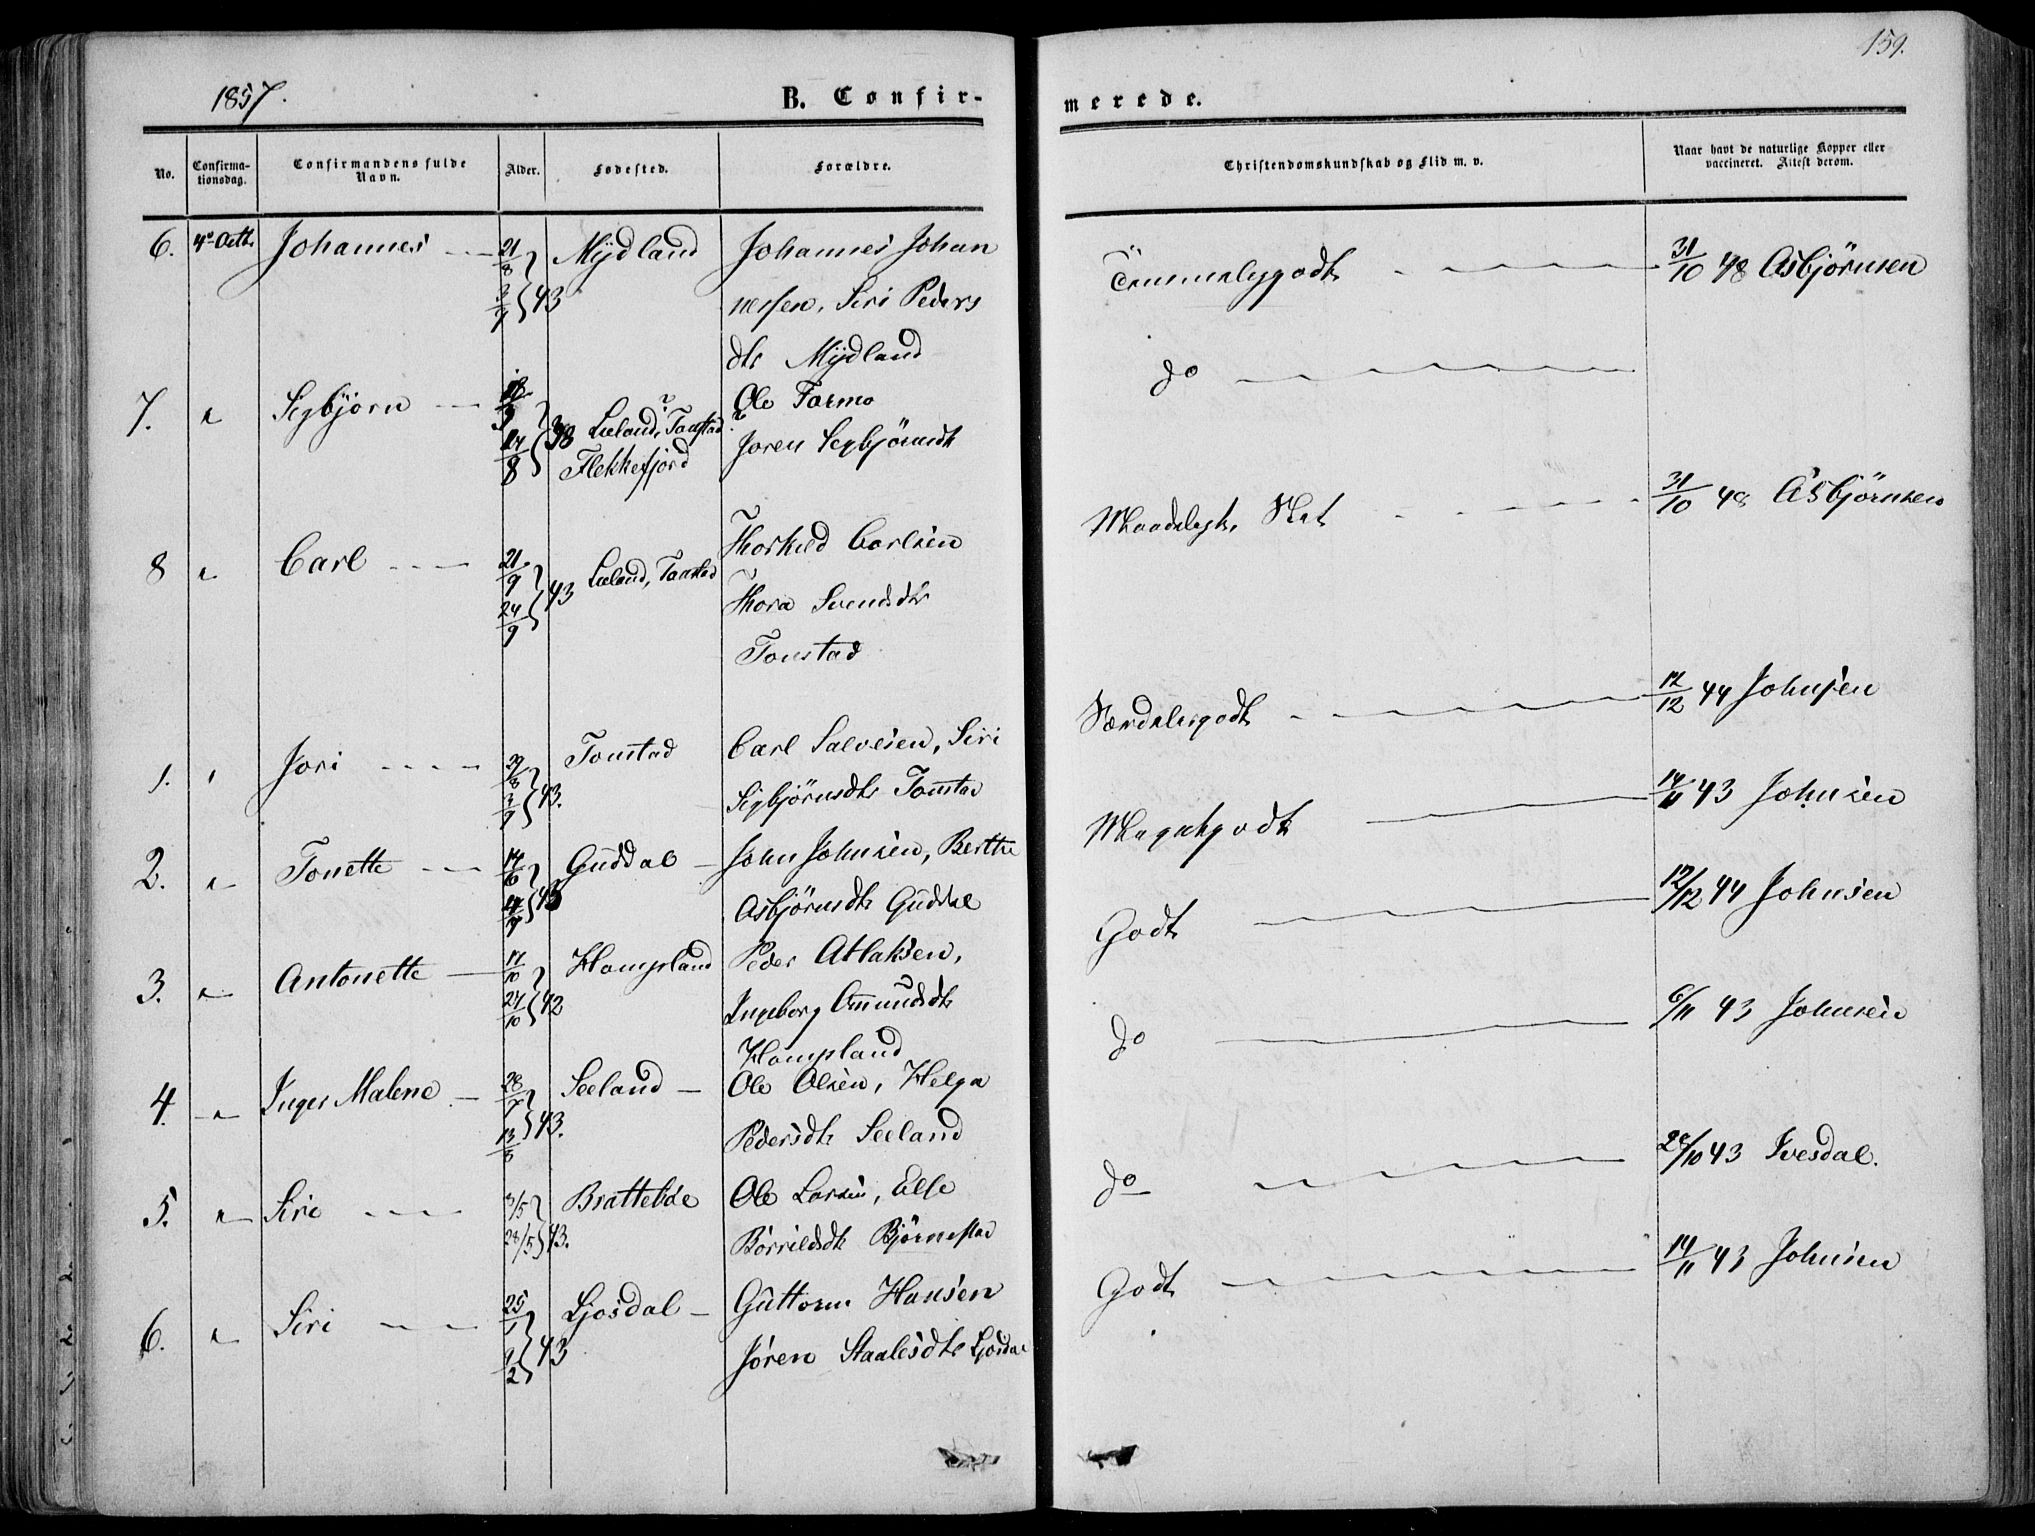 159.
1857.
B. Confir-
merede.
No.
Confirma-
tionsdag.
Confirmandens fulde
Navn.
Alder.
Fødested.
Forældre.
Christendomskundskab og Flid m. v.
Naar havt de naturlige Kopper eller
vaccineret. Attest derom.
6. 4de Octb. Johannes 21/8 3/9 43 Mydland Johannes Johan
nessen, Siri Peders
dtr Mydland
Temmeliggodt 31/10 48 Asbjørnsen
do
7. " Sigbjørn 38 Lieland, Tonstad?
Flekkefjord
Ole Tormo
Joren Sigbjørnsdtr
31/10 48 Asbjørnsen
8 " Carl 21/9 24/9 43 Lieland, Tonstad
Thorkild Carlsen
Thora Svendsdtr
Tonstad
12/12 44 Johnsen
1. " Jori 43. Tonstad Carl Salvesen, Siri
Sigbjørnsdtr Tonstad
Megetgodt 14/11 43 Johnsen
2. " Tonette 43 Guddal John Johnsen, Berthe
Asbjørnsdtr Guddal
Godt 12/12 44 Johnsen
3. " Antonette 17/10 27/10 42 Hompland Peder Atlaksen,
Ingeborg Omundsdtr
Hompland
do 6/11 43 Johnsen
4. " Inger Malene 28/7 13/8 43. Seeland Ole Olsen, Helga
Pedersdtr Seeland
do 28/10 43 Ivesdal.
5. " Siri 3/5 28/5 43. Brattebøe Ole Larsen, Else
Børrildsdtr Bjørnestad
Godt 14/11 43 Johnsen
6. " Siri 25/1 9/2 43 Ljosdal Guttorm Hansen
Jøren Staalesdtr Ljosdal